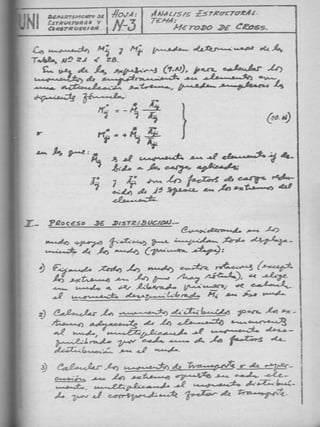 UNI
DEPARTAMENTO DE
ESTRUCTURAS Y
CONSTRUCCIÓN
HOJA:
N-3
ANÁLISIS ESTRUCTURAL
TEMA:
MÉTODO DE CROSS.
Los momentos y pueden determinarse de la
Tabla Nº 2A y 2B.
En vez de las expresiones (9.N), para calcular los
momentos de empotramiento en elementos con
una articulación extrema, pueden emplearse las
siguientes fórmulas:
(10.N)
y
en las que:
es el momento en el elemento ij de-
bido a las cargas aplicadas;
y son los factores de carga redu-
cidos de en los extremos del
elemento.
II.- PROCESO DE DISTRIBUCIÓN.-
Consideremos en los
nudos apoyos ficticios que impiden todo desplaza-
miento de los nudos (primera etapa):
1) Fijando todos los nudos contra rotaciones (excepto
los extremos en los que hay rótula), se elige
un nudo a ser liberado primero, se calcula
el momento desequilibrado en ese nudo
2) Calcular los momentos distribuidos para los ex-
tremos adyacentes de los elementos concurrentes
al nudo, multiplicando el momento dese-
quilibrado por cada uno de los factores de
distribución en el nudo.
3) Calcular los momentos de transporte
en los extremos opuestos en cada ele-
mento, multiplicando el momento distribui-
do por el correspondiente factor de transporte.